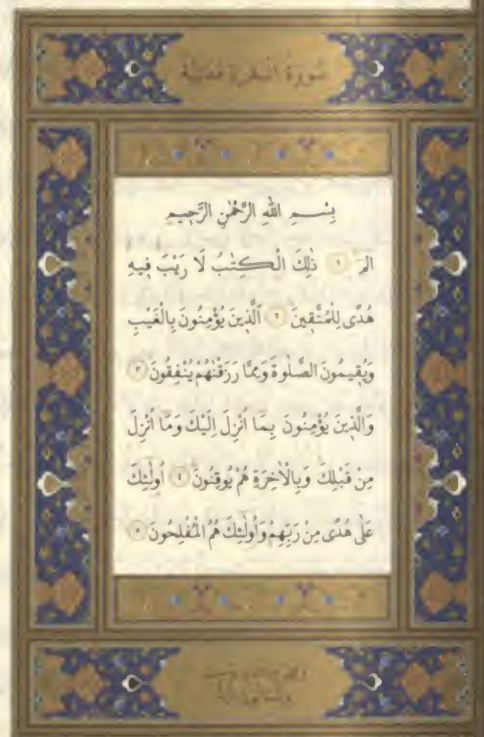 سُورَةُ الْبَقَرَةِ مَدَنِيَّةٌ
بِسْـــمِ اللّٰهِ الرَّحْمٰنِ الرَّحٖيمِ
الٓمٓ ﴿١﴾ ذٰلِكَ الْكِتٰبُ لَا رَيْبَ فٖيهِ
هُدًى لِلْمُتَّقٖينَ ﴿٢﴾ اَلَّذٖينَ يُؤْمِنُونَ بِالْغَيْبِ
وَيُقٖيمُونَ الصَّلٰوةَ وَمِمَّا رَزَقْنٰهُمْ يُنْفِقُونَ ﴿٣﴾
وَالَّذٖينَ يُؤْمِنُونَ بِمَٓا اُنْزِلَ اِلَيْكَ وَمَٓا اُنْزِلَ
مِنْ قَبْلِكَ وَبِالْاٰخِرَةِ هُمْ يُوقِنُونَ ﴿٤﴾ اُولٰٓئِكَ
عَلٰى هُدًى مِنْ رَبِّهِمْ وَاُولٰٓئِكَ هُمُ الْمُفْلِحُونَ ﴿٥﴾